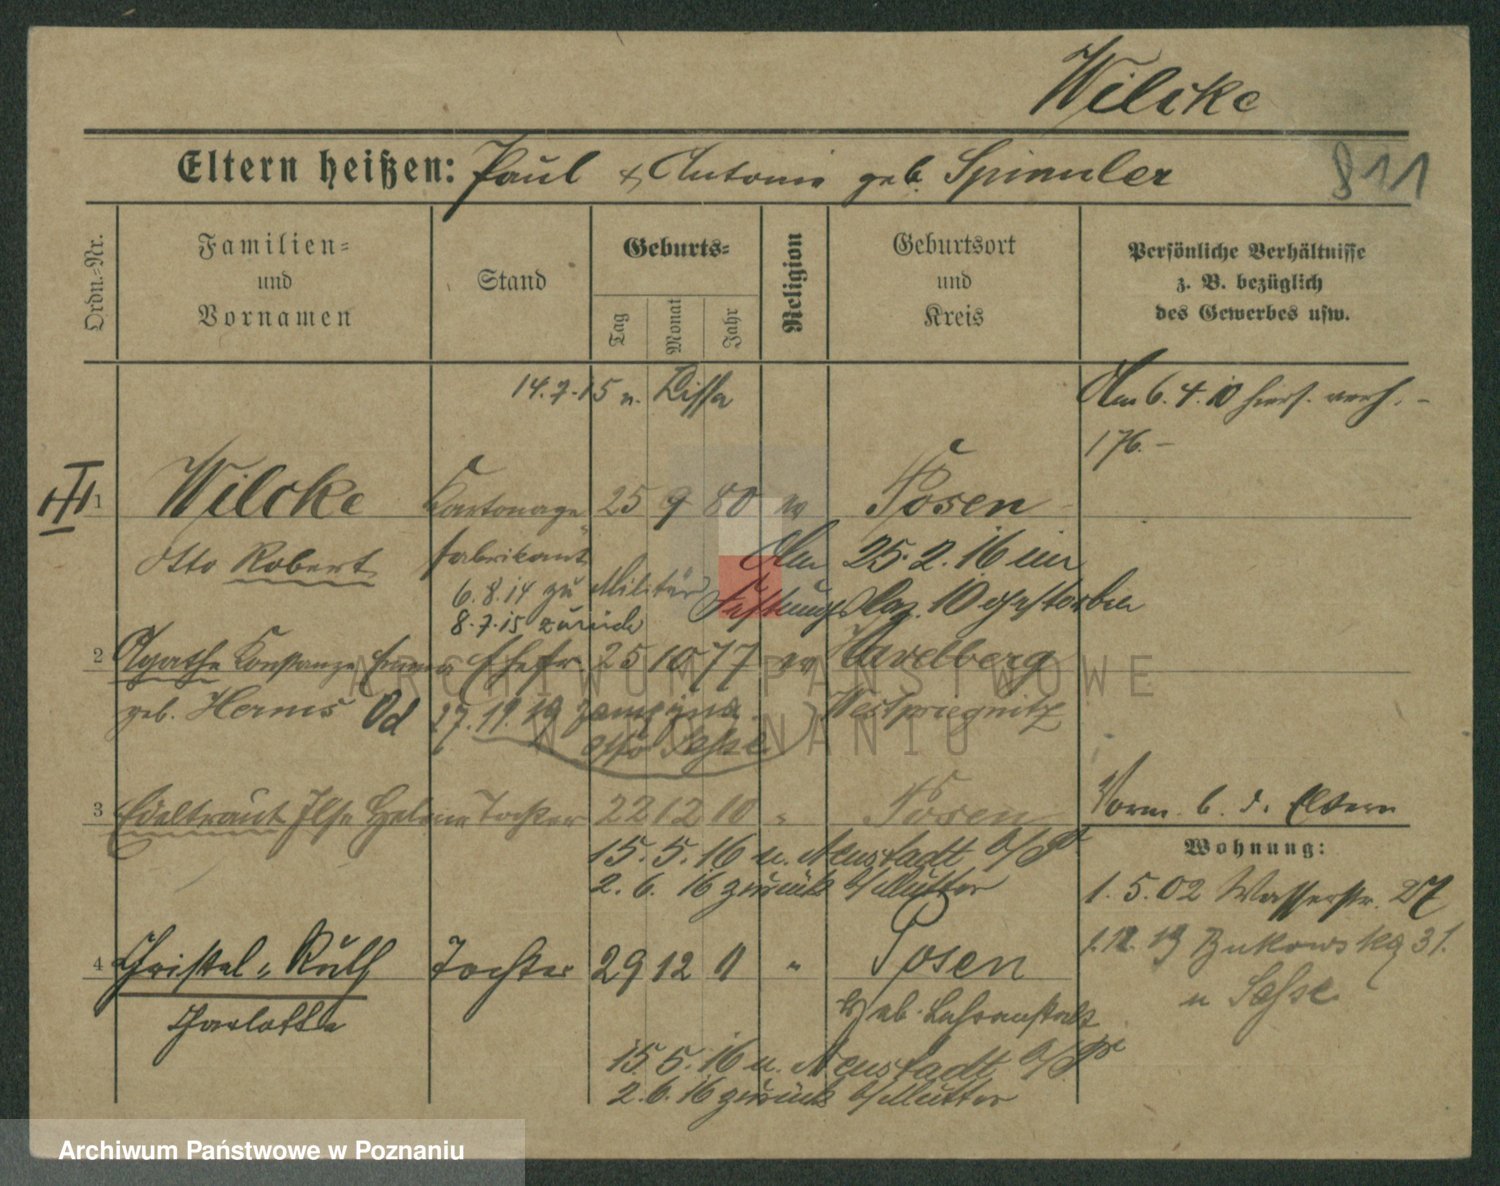 Wilcke
Eltern heißen: Paul & Antonie geb. Spinnler
811
Ordn.-Nr.
Familien-
und
Vornamen
Stand
Geburts-
Tag
Monat
Jahr
Religion
Geburtsort
und
Kreis
Persönliche Verhältnisse
z. B. bezüglich
des Gewerbes usw.
14.7.15 n. Lissa
Am 6.4.10 hiers. verh. –
176. –
III
1 Wilcke Kartonage 25 9 80 ev Posen
Otto Robert fabrikant Am 25.2.16 im
6.8.14 zu Militär Festungslaz. 10 gestorben
8.7.15 zurück
2 Agathe Konstanze Emma Ehefr. 25 10 77 ev Havelberg
geb. Harms Od 27.11.19 Westpriegnitz
Otto Sasse
3 Edeltraut Ilse Helene Tochter 22 12 10 " Posen
Vorm. b. d. Eltern
15.5.16 n. Neustadt b/P
2.6.16 zurück b/Mutter
Wohnung:
1.5.02 Wasserstr. 27
1.12.19 Bukowskq 31.
n Sasse
4 Christel-Ruth Tochter 29 12 11 " Posen
Charlotte
Heb. Lehranstalt
15.5.16 n. Neustadt b/P
2.6.16 zurück b/Mutter
ARCHIWUM PAŃSTWOWE
W POZNANIU
Archiwum Państwowe w Poznaniu